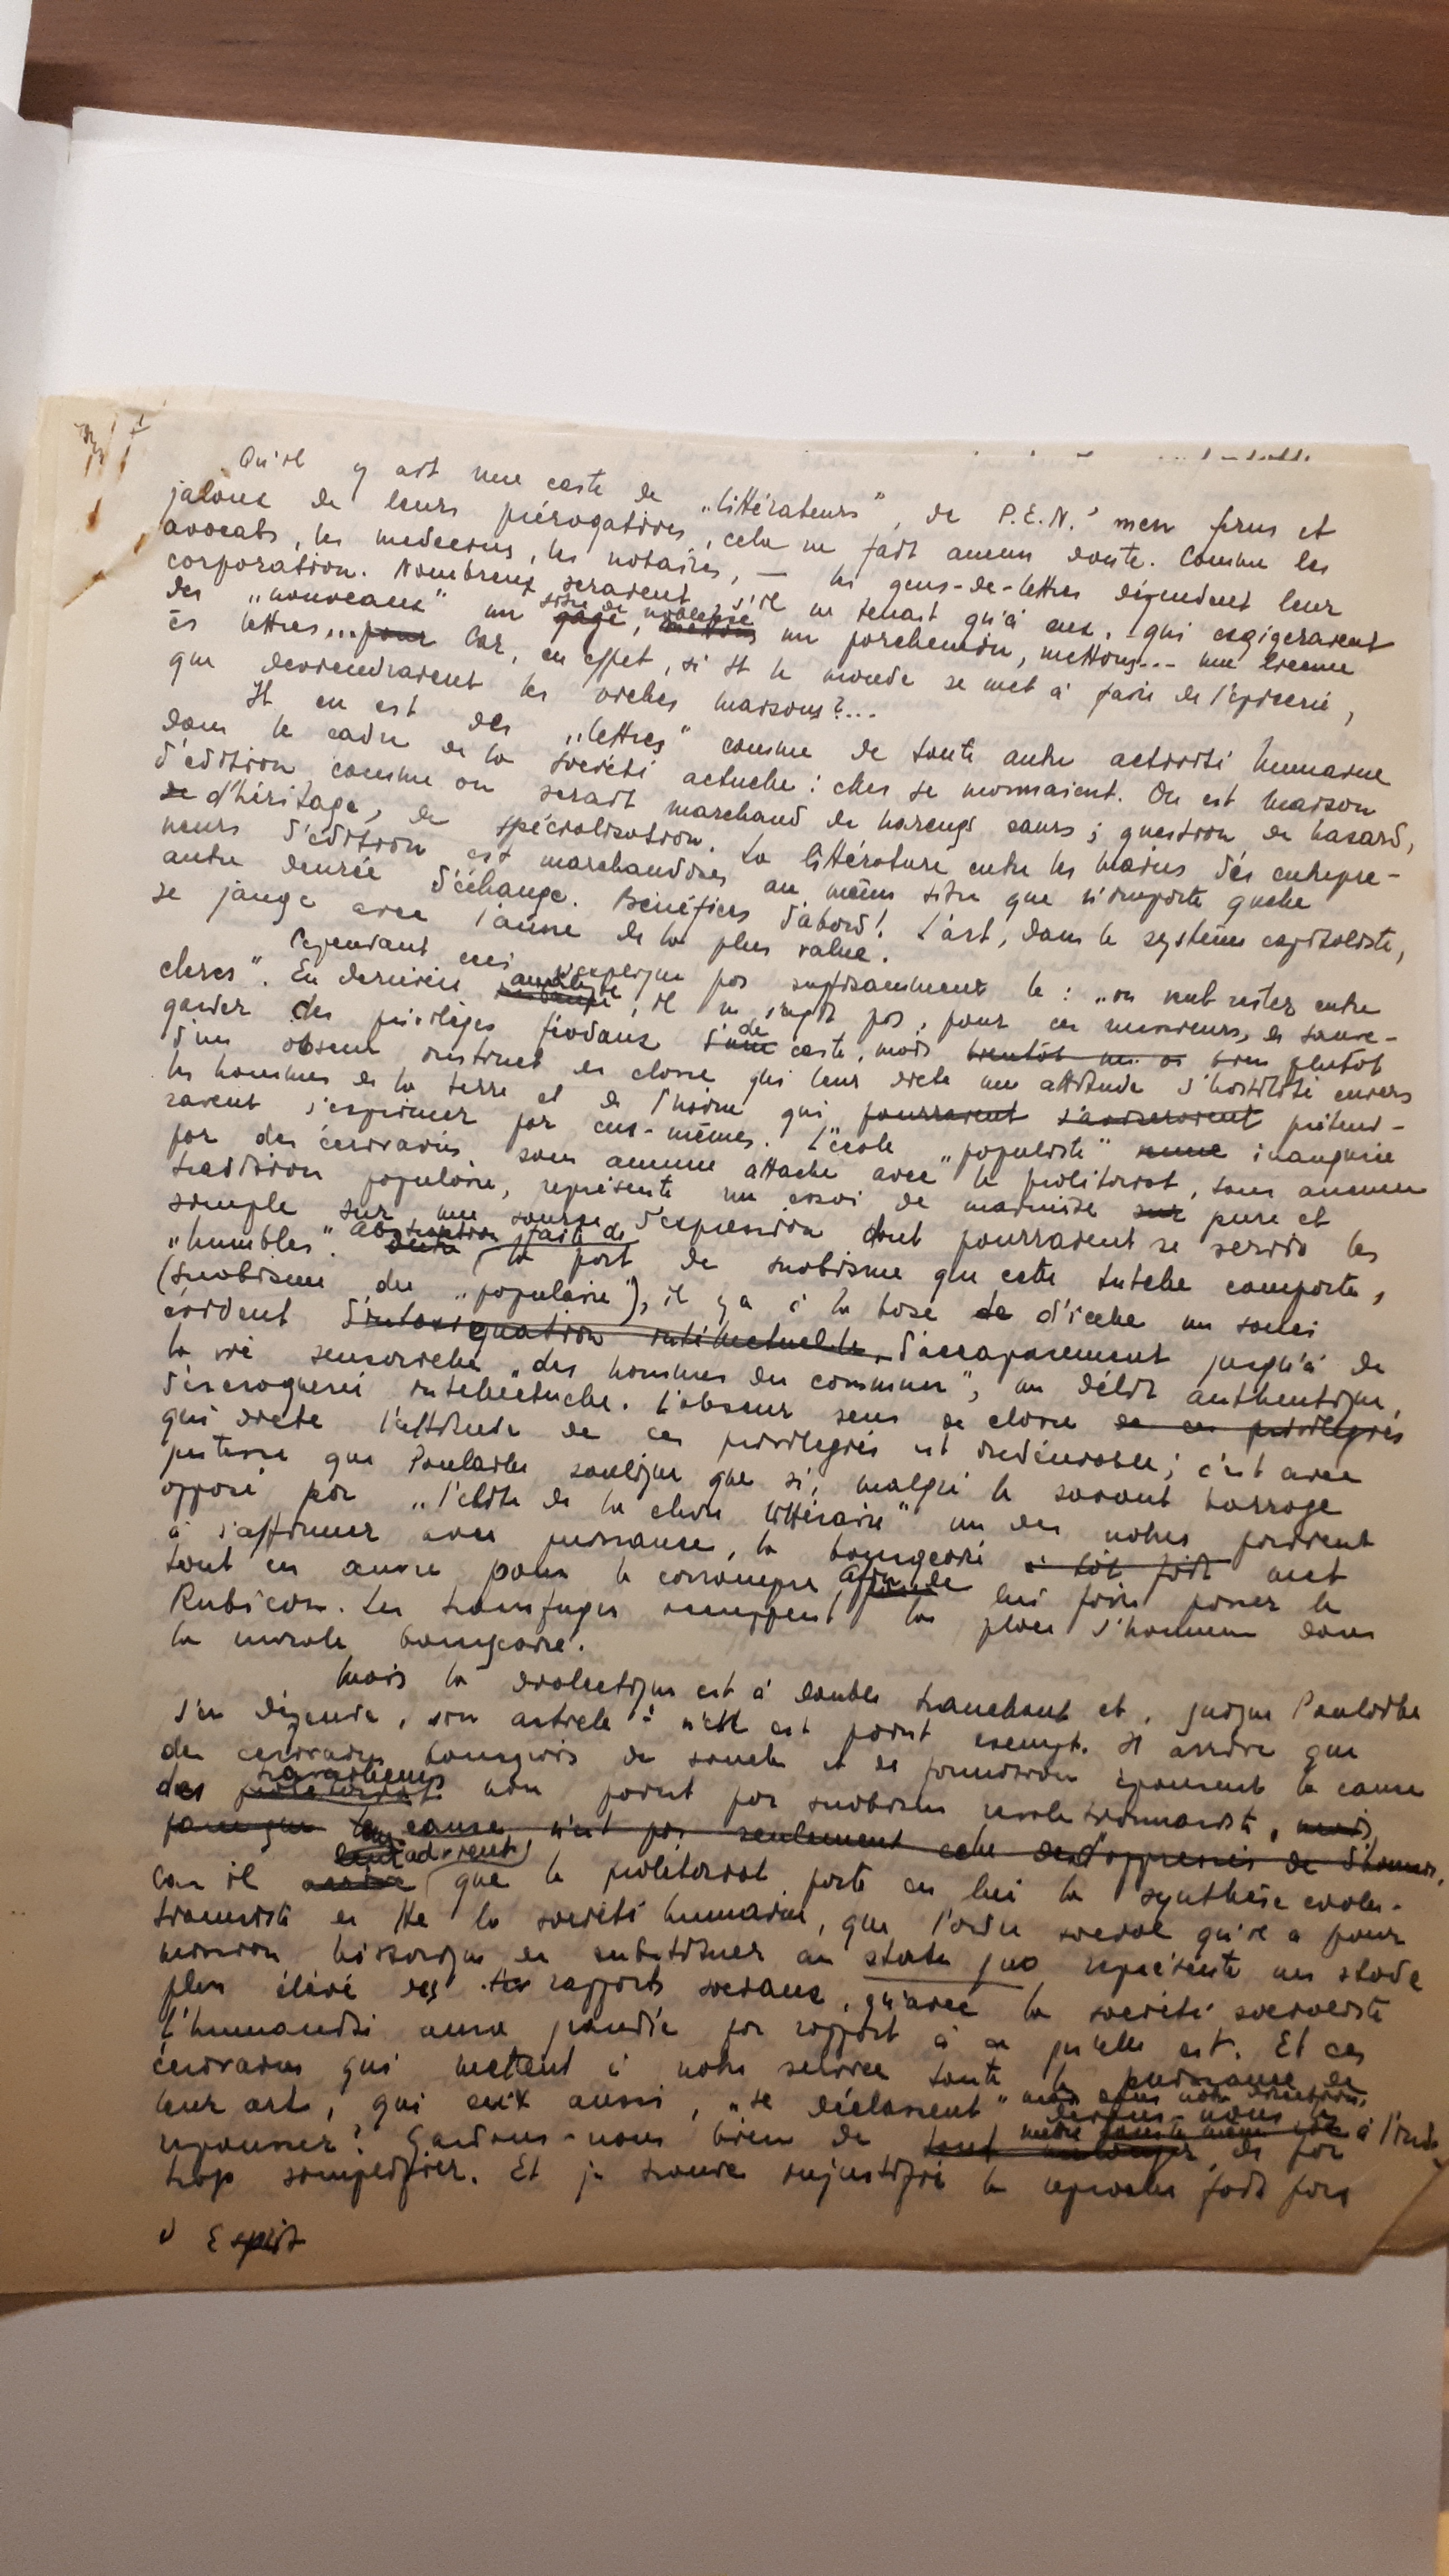 Qu'il y ait une caste de „littérateurs", de P.E.N.' men férus et
jaloux de leurs prérogatives, cela ne fait aucun doute. Comme les
avocats, les medecins, les notaires, — les gens-de-lettres défendent leur
corporation. Nombreux seraient, s'il ne tenait qu'à eux, qui exigeraient
des „nouveaux" un titre de noblesse gage, un parchemin, mettons... une licence
ès lettres... pour Car, en effet, si tt le monde se met à faire de l'épicerie,
que deviendraient les vieilles maisons?...
Il en est des „lettres" comme de toute autre activité humaine
dans le cadre de la société actuelle: elles se monnaient. On est maison
d'édition comme on serait marchand de harengs saurs; question de hasard,
de d'héritage, de spécialisation. La littérature entre les mains des entrepre-
neurs d'édition est marchandises au même titre que n'importe quelle
autre denrée d'échange. Bénéfices d'abord! L'art, dans le système capitaliste,
se jauge avec l'aune de la plus value.
Cependant ceci n'explique pas suffisamment le: „on veut rester entre
clercs". En dernière analyse, il ne s'agit pas, pour ces messieurs, de sauve-
garder des privilèges féodaux d'une de caste, mais bientôt bien plutôt
d'un obscur instinct de classe qui leur dicte une attitude d'hostilité envers
les hommes de la terre et de l'usine qui pourraient s'aviseraient préten-
raient s'exprimer par eux-mêmes. L'école „populiste" inaugurée
par des écrivains sans aucune attache avec le prolétariat, sans aucune
tradition populaire, représente un essai de mainmise sur pure et
simple sur une source d'expression dont pourraient se servir les
„humbles". Abstraction faite de la part de snobisme que cette tutelle comporte,
(snobisme du „populaire"), il y a à la base de d'icelle un souci
évident intellectuelle, d'accaparement jusqu'à de
la vie sensorielle „des hommes du commun", un délit authentique,
d'escroquerie intellectuelle. L'obscur sens de classe de ces privilégiés
qui dicte l'attitude de ces privilégiés est indéniable; c'est avec
justesse que Poulaille souligne que si, malgré le savant barrage
opposé par „l'élite de la chose littéraire" un des nôtres parvient
à s'affirmer avec puissance, la bourgeoisie a tôt fait met
tout en œuvre pour le corrompre, afin de lui faire passer le
Rubicon. Les transfuges occuppent la place d'honneur dans
la morale bourgeoise.
Mais la dialectique est à double tranchant et, quoique Poulaille
s'en défende, son article n'est point exempt. Il arrive que
des écrivains bourgeois de souche et de formation épousent la cause
des travailleurs prolétariat non point par snobisme révolutionnariste, mais
parce que leur cause n'est pas seulement celle des opprimés
car il que le prolétariat porte en lui la synthèse évolu-
tionniste de tte la société humaine, que l'ordre social qu'il a pour
mission historique de substituer au statu quo représente un stade
plus élevé des les rapports sociaux, qu'avec la société socialiste
l'humanité aura grandie par rapport à ce qu'elle est. Et ces
écrivains qui mettent à notre service toute la puissance de
leur art, qui eux aussi, „se déclassent"
repousser? Gardons-nous bien de
trop simplifier. Et je trouve injustifié le reproche fait par
à Esprit